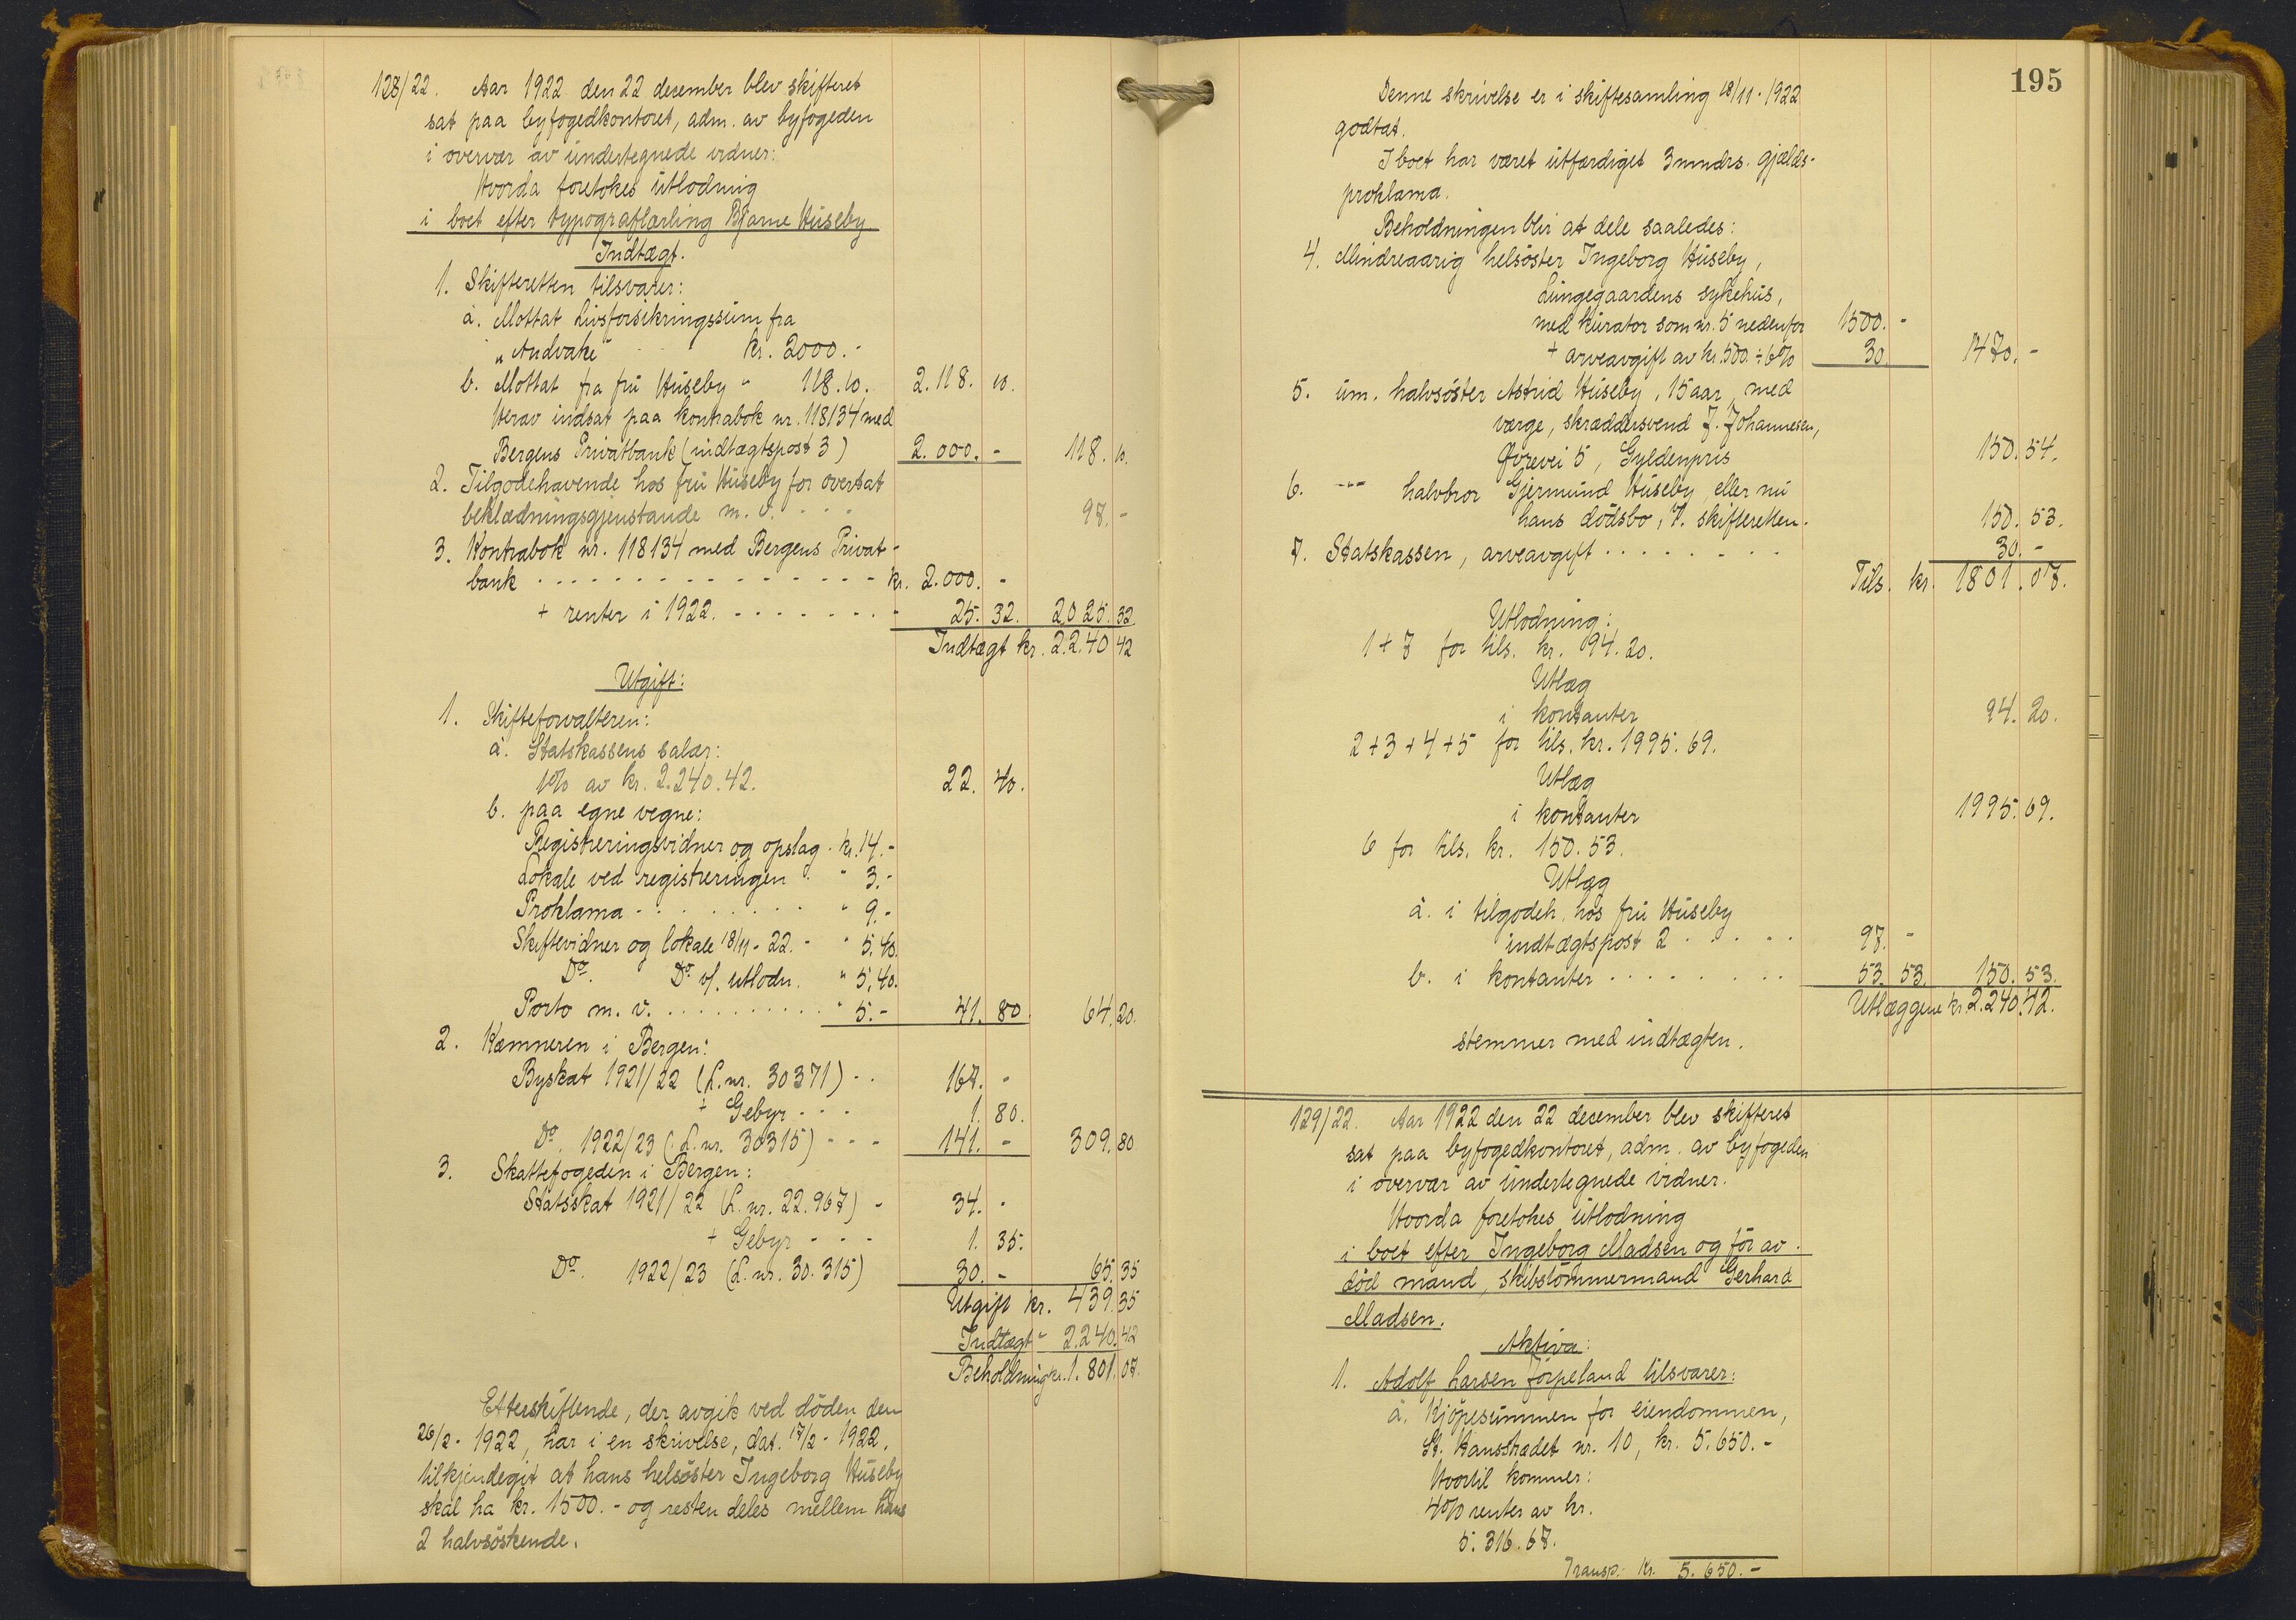 128/22. Aar 1922 den 22 december blev skifteret
sat paa byfogedkontoret, adm. av byfogeden
i overvær av undertegnede vidner:
Hvorda foretokes utlodning
i boet efter typograflærling Bjarne Huseby
Indtægt.
1. Skifteretten tilsvarer:
a. Mottat Livsforsikringssum fra
„Andvake" kr. 2000.-
b. Mottat fra fru Huseby " 118.10. 2.118. 10.
Herav indsat paa kontrabok nr. 118134 med
Bergens Privatbank (indtægtspost 3) 2.000. - 118. 10.
2. Tilgodehavende hos fru Huseby for overtat
beklædningsgjenstande m. v. . . . 97. -
3. Kontrabok nr. 118134 med Bergens Privat-
bank - - - - - - - - - - - - - - - kr. 2.000. -
+ renter i 1922. - - - - - - - 25. 32. 2025. 32
Indtægt kr. 2.240 42
Utgift:
1. Skifteforvalteren:
a. Statskassens salær:
1% av kr. 2.240.42. 22. 40.
b. paa egne vegne:
Registreringsvidner og opslag . kr. 14.-
Lokale ved registreringen . " 3.-
Proklama - . . . . . . . " 9.-
Skiftevidner og lokale 18/11 - 22. - " 5.40.
Do. Do v/. utlodn. " 5.40.
Porto m. v. . . . . . . . . . . " 5.- 41. 80. 64. 20.
2. Kæmneren i Bergen:
Byskat 1921/22 (L. nr. 30371) - . 167. -
+ Gebyr - - - 1. 80.
Do. 1922/23 (L. nr. 30315) - - - 141. - 309. 80
3. Skattefogeden i Bergen:
Statsskat 1921/22 (L. nr. 22.967) - 34. -
+ Gebyr - - - 1. 35.
Do. 1922/23 (L. nr. 30.315) 30. - 65. 35
Utgift kr. 439. 35
Indtægt " 2.240. 42
Beholdning kr. 1.801. 07.
Efterskiftende, der avgik ved döden den
26/2 - 1922, har i en skrivelse, dat. 17/2 - 1922,
tilkjendegit at hans helsöster Ingeborg Huseby
skal ha kr. 1500.- og resten deles mellem hans
2 halvsöskende.
195
Denne skrivelse er i skiftesamling 18/11 - 1922
godtat.
I boet har været utfærdiget 3 mndrs. gjælds-
proklama.
Beholdningen blir at dele saaledes:
4. Mindreaarig helsöster Ingeborg Huseby,
Lungegaardens sykehus,
med kurator som nr. 5 nedenfor 1500. -
+ arveavgift av kr. 500. ÷ 6% 30. 1470. -
5. um. halvsöster Astrid Huseby, 15 aar, med
værge, skræddersvend J. Johannesen,
Övrevei 5, Gyldenpris 150. 54.
6. -"- halvbror Gjermund Huseby, eller nu
hans dödsbo, v. skifteretten. 150. 53.
7. Statskassen, arveavgift . . . . . . . . 30. -
Tils. kr. 1801. 07.
Utlodning:
1 + 7 for tils. kr. 94.20.
Utlæg
i kontanter 94. 20.
2 + 3 + 4 + 5 for tils. kr. 1995.69.
Utlæg
i kontanter 1995. 69.
6 for tils. kr. 150.53.
Utlæg
a. i tilgodeh. hos fru Huseby
indtægtspost 2 . . . . . 97. -
b. i kontanter . . . . . . . . 53. 53. 150. 53.
Utlæggene kr. 2.240.42.
stemmer med indtægten.
129/22. Aar 1922 den 22 december blev skifteret
sat paa byfogedkontoret, adm. av byfogeden
i overvær av undertegnede vidner.
Hvorda foretokes utlodning
i boet efter Ingeborg Madsen og för av-
död mand, skibstömmermand Gerhard
Madsen.
Aktiva:
1. Adolf Larsen Förpeland tilsvarer:
a. Kjöpesummen for eiendommen,
St. Hansstrædet nr. 10, kr. 5.650.-
Hvortil kommer:
4% renter av kr.
5.316.67.
Transp. Kr. 5.650.-